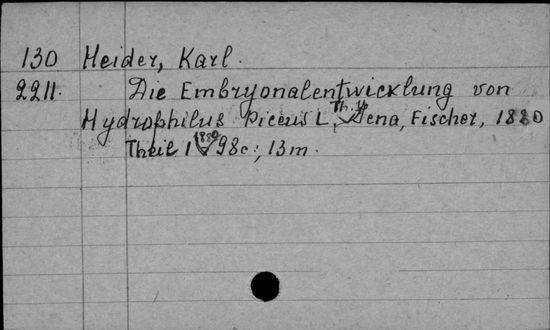 130 Heider, Karl.
2211. Die Embryonalentwicklung von
Hydrophilus Piceus L, Th. I. Jena, Fischer, 1880
Theil 1 1880 98c:, 13m.